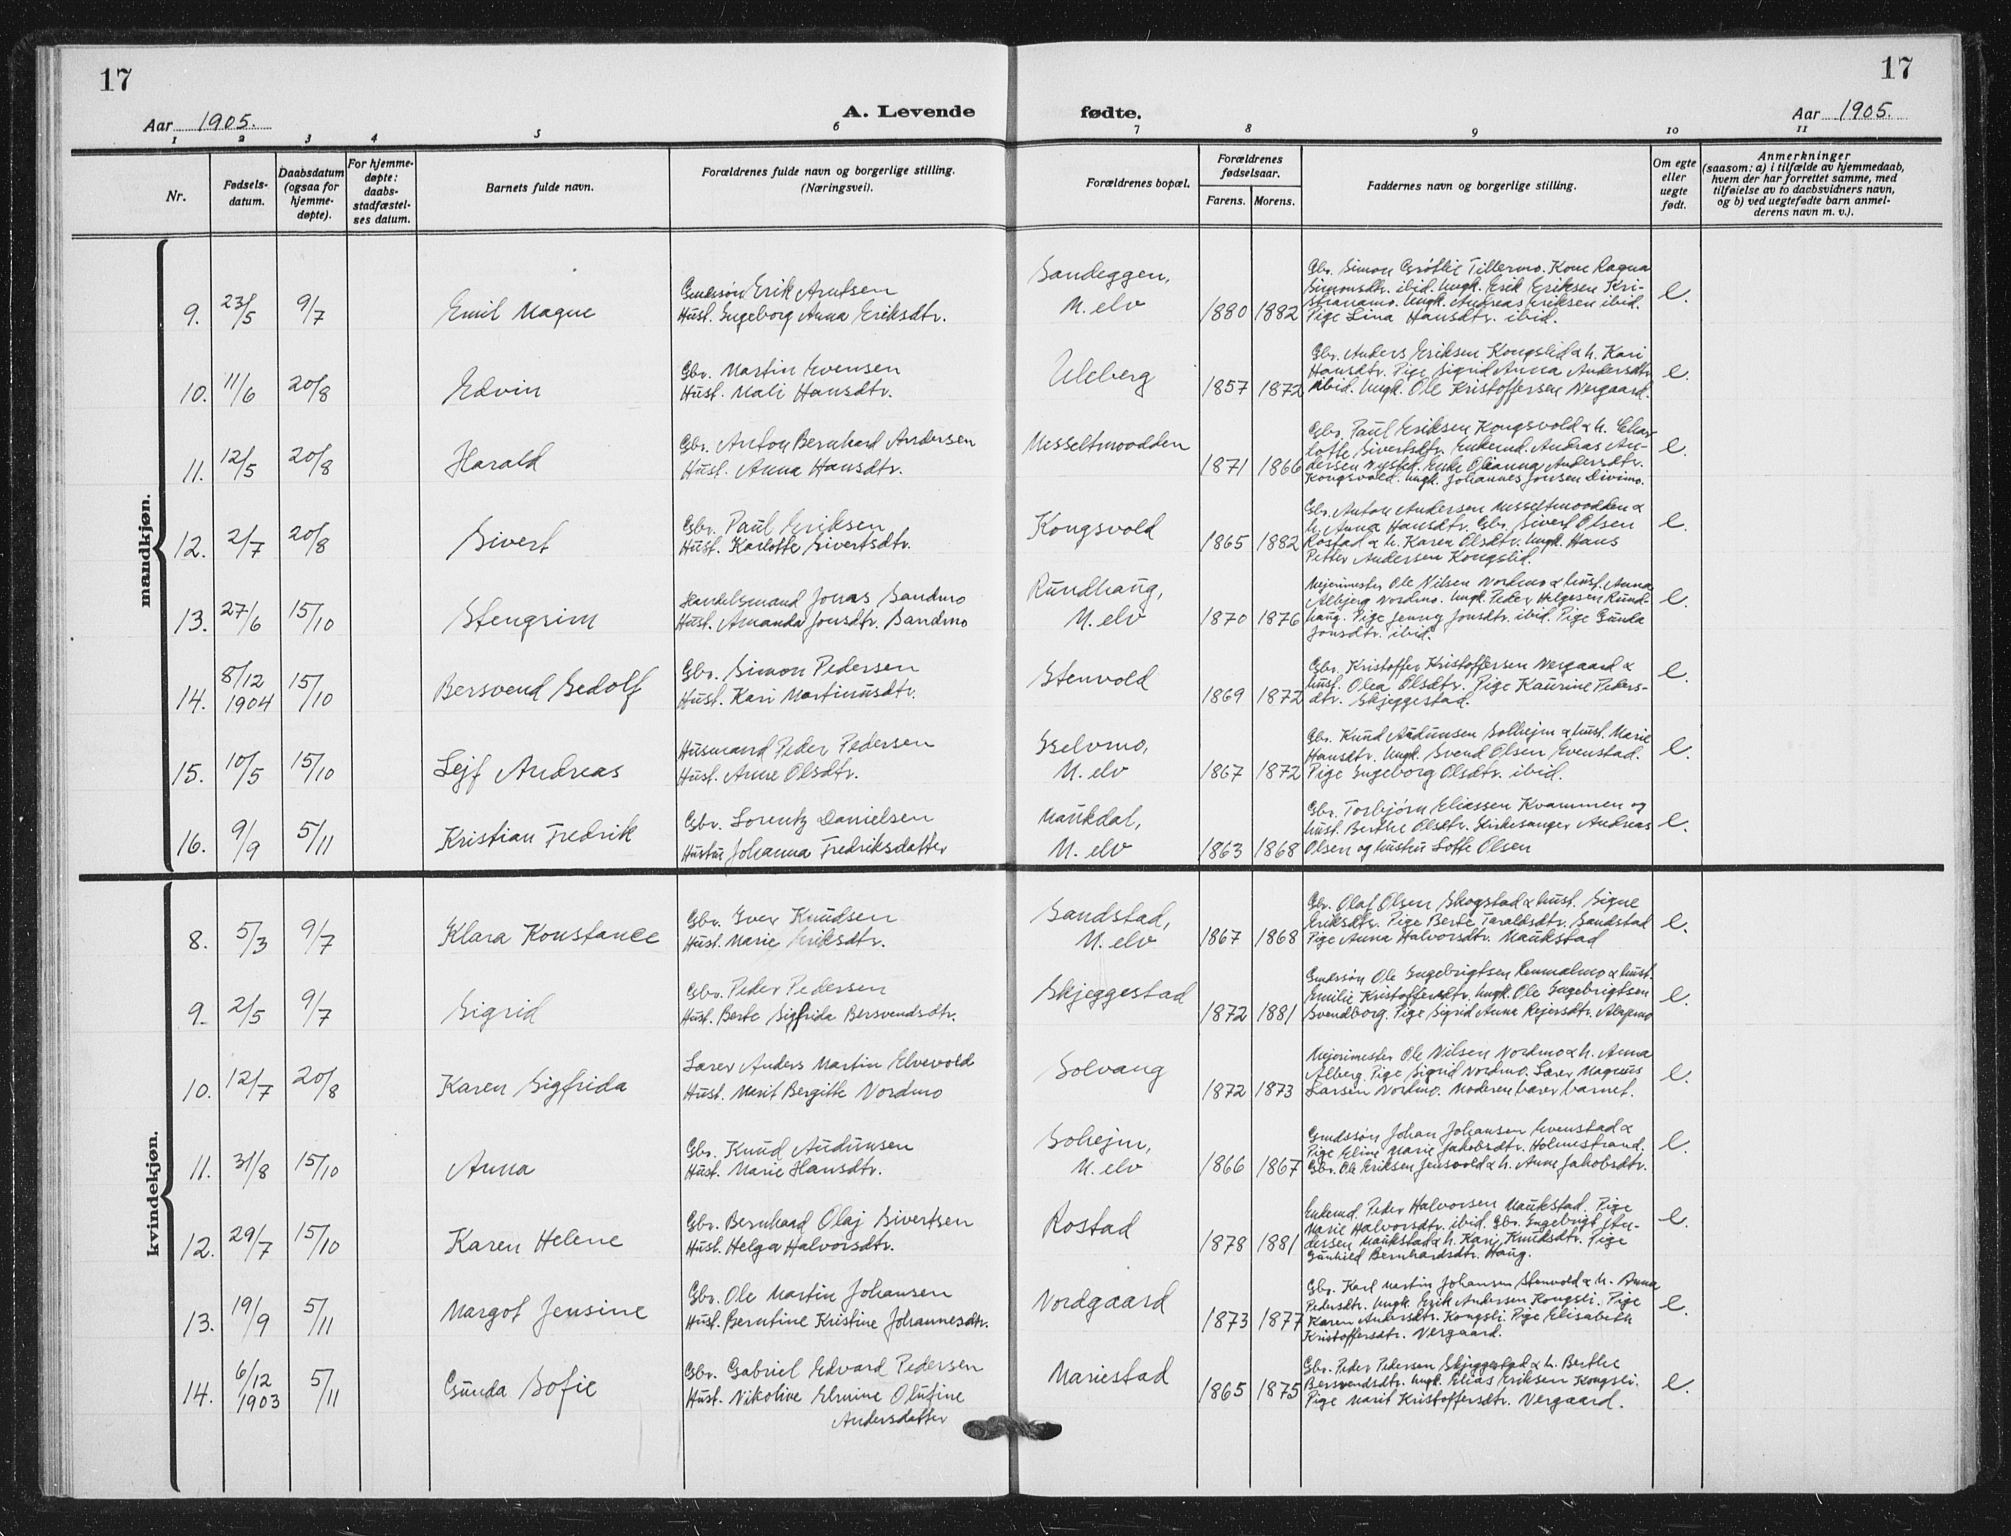 17
17
Aar 1905.
A. Levende
fødte.
Aar 1905.
1 2 3 4 5 6 7 8 9 10 11
Nr.
Fødsels-
datum.
Daabsdatum
(ogsaa for
hjemme-
døpte).
For hjemme-
døpte:
daabs-
stadfæstel-
ses datum.
Barnets fulde navn.
Forældrenes fulde navn og borgerlige stilling.
(Næringsvei).
Forældrenes bopæl.
Forældrenes
fødselsaar.
Farens. Morens.
Faddernes navn og borgerlige stilling.
Om egte
eller
uegte
født.
Anmerkninger
(saasom: a) i tilfælde av hjemmedaab,
hvem der har forrettet samme, med
tilføielse av to daabsvidners navn,
og b) ved uegtefødte barn anmel-
derens navn m. v.).
mandkjøn.
9. 23/5 9/7 Emil Magne
Gmdssøn Erik Arntsen
Hust. Ingeborg Anna Eriksdtr.
Sandeggen,
M. elv
1880 1882
Gbr. Simon Grøtlie Tillermo. Kone Ragna
Simonsdtr. ibid. Ungk. Erik Eriksen Kri-
stianamo. Ungk. Andreas Eriksen ibid.
Pige Lina Hansdtr. ibid.
e.
10. 11/6 20/8 Edvin
Gbr. Martin Evensen
Hust. Mali Hansdtr.
Uleberg
1857 1872
Gbr. Anders Eriksen Kongslid & h. Kari
Hansdtr. Pige Sigrid Anna Andersdtr
ibid. Ungk. Ole Kristoffersen Vergaard.
e.
11. 12/5 20/8 Harald
Gbr. Anton Bernhard Andersen
Hust. Anna Hansdtr.
Messeltmoodden
1871 1866
Gbr. Paul Eriksen Kongsvold & h. Char
lotte Sivertsdtr. Enkemd. Andras An-
dersen Nysted. Enke Oleanna Andersdtr.
Kongsvold. Ungk. Johannes Jonsen Divimo.
e.
12. 2/7 20/8 Sivert
Gbr. Paul Eriksen
Hust. Karlotte Sivertsdtr.
Kongsvold
1865 1882
Gbr. Anton Andersen Messeltmoodden &
h. Anna Hansdtr. Gbr. Sivert Olsen
Rostad & h. Karen Olsdtr. Ungk. Hans
Petter Andersen Kongslid.
e.
13. 27/6 15/10 Stengrim
Handelsmand Jonas Sandmo
Hust. Amanda Jonsdtr. Sandmo
Rundhaug,
M. elv
1870 1876
Mejerimester Ole Nilsen Nordmo & hust. Anna
Albjerg Nordmo. Ungk. Peder Helgesen Rund-
haug. Pige Jenny Jonsdtr. ibid. Pige Gunda
Jonsdtr. ibid.
e.
14. 8/12 1904 15/10 Bersvend Gedolf
Gbr. Simon Pedersen
Hust. Kari Martinusdtr.
Stenvold
1869 1872
Gbr. Kristoffer Kristoffersen Vergaard &
hust. Olea Olsdtr. Pige Kaurine Peders-
dtr. Skjeggestad.
e.
15. 10/5 15/10 Lejf Andreas
Husmand Peder Pedersen
Hust. Anne Olsdtr.
Gselvmo,
M. elv
1867 1872
Gbr. Knud Audunsen Solhejm & hust. Marie
Hansdtr. Ungk. Svend Olsen Evenstad.
Pige Ingeborg Olsdtr. ibid.
e.
16. 9/9 5/11 Kristian Fredrik
Gbr. Lorentz Danielsen
Hustru Johanna Fredriksdatter
Maukdal,
M. elv
1863 1868
Gbr. Torbjørn Eliassen Kvammen og
hust. Berthe Olsdtr. Kirkesanger Andreas
Olsen og hustru Lotte Olsen
e.
kvindekjøn.
8. 5/3 9/7 Klara Konstance
Gbr. Iver Knudsen
Hust. Marie Eriksdtr.
Sandstad,
M. elv
1867 1868
Gbr. Olaf Olsen Skogstad & hust. Signe
Eriksdtr. Pige Berte Taraldsdtr. Sandstad
Pige Anna Halvorsdtr. Maukstad
e.
9. 2/5 9/7 Sigrid
Gbr. Peder Pedersen
Hust. Berte Sigfrida Bersvendsdtr.
Skjeggestad
1872 1881
Gmdssøn Ole Ingebrigtsen Rommelmo & hust.
Emilie Kristoffersdtr. Ungk. Ole Ingebrigtsen
Svendborg. Pige Sigrid Anna Rejersdtr. Alapmo
e.
10. 12/7 20/8 Karen Sigfrida
Lærer Anders Martin Elvevold
Hust. Marit Bergitte Nordmo
Solvang
1872 1873
Mejerimester Ole Nilsen Nordmo & h. Anna
Alberg. Pige Sigrid Nordmo. Lærer Magnus
Larsen Nordmo. Moderen barer barnet.
e.
11. 31/8 15/10 Anna
Gbr. Knud Audunsen
Hust. Marie Hansdtr.
Sohejm,
M. elv
1866 1867
Gmdssøn Johan Johansen Evenstad &
Pige Eline Marie Jakobsdtr. Holmestrand.
Gbr. Ole Eriksen Jensvold & h. Anne Jakobsdtr.
e.
12. 29/7 15/10 Karen Helene
Gbr. Bernhard Olaj Sivertsen
Hust. Helga Halvorsdtr.
Rostad
1878 1881
Enkemd. Peder Halvorsen Maukstad. Pige
Marie Halvorsdtr. ibid. Gbr. Engebrigt An-
dersen Maukstad & h. Kari Knutsdtr. Pige
Gunhild Bernhardsdtr. Haug.
e.
13. 19/9 5/11 Margot Jensine
Gbr. Ole Martin Johansen
Hust. Berntine Kristine Johannesdtr.
Nordgaard
1873 1877
Gbr. Karl Martin Johansen Stenvold & h. Anna
Pedersdtr. Ungk. Erik Andersen Kongsli. Pige
Karen Andersdtr. Kongsli. Pige Elisabeth
Kristoffersdtr. Vergaard.
e.
14. 6/12 1903 5/11 Gunda Sofie
Gbr. Gabriel Edvard Pedersen
Hust. Nikoline Elmine Olufine
Andersdatter
Mariestad
1865 1875
Gbr. Peder Pedersen Skjeggestad & h. Berthe
Bersvendsdtr. Ungk. Elias Eriksen Kongsli.
Pige Marit Kristoffersdtr. Vergaard.
e.